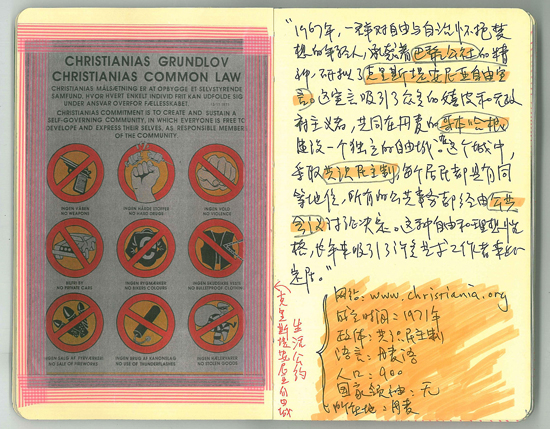 CHRISTIANIAS GRUNDLOV
CHRISTIANIAS COMMON LAW
CHRISTIANIAS MÅLSÆTNING ER AT OPBYGGE ET SELVSTYRENDE
SAMFUND, HVOR HVERT ENKELT INDIVID FRIT KAN UDFOLDE SIG
UNDER ANSVAR OVERFOR FÆLLESSKABET.
CHRISTIANIAS COMMITMENT IS TO CREATE AND SUSTAIN A
SELF-GOVERNING COMMUNITY, IN WHICH EVERYONE IS FREE TO
DEVELOPE AND EXPRESS THEIR SELVES, AS RESPONSIBLE MEMBERS
OF THE COMMUNITY.
INGEN VÅBEN
NO WEAPONS
INGEN HÅRDE STOFFER
NO HARD DRUGS
INGEN VOLD
NO VIOLENCE
NO PRIVATE CARS
INGEN RYGMÆRKER
NO BIKERS-COLOURS
INGEN SKUDSIKRE VESTE
NO BULLETPROOF CLOTHING
INGEN SALG AF FYRVÆRKERI
NO SALE OF FIREWORKS
INGEN BRUG AF KANONSLAG
NO USE OF THUNDERFLASHES
INGEN HÆLERVARER
NO STOLEN GOODS
《克里斯提安尼亚自由城
生活公约
"1967年,一群对自由与自治心怀梦
想的年轻人,承袭着巴黎公社的精
神,研拟了克里斯提安尼亚自由宣
言。这宣言吸引了众多的嬉皮和无政
府主义者,共同在丹麦的哥本哈根
建设一个独立的自由城。"这个城中,
采取共识民主制,每个居民都具有同
等地位,所有的公共事务都经由公共
会议讨论决定。这种自由和理想性
格,长年来吸引了许多艺术工作者来此
网站:www.christiania.org
成立时间:1971年
政体:共识民主制
语言:丹麦语
人口:900
国家领袖:无
所在地:丹麦